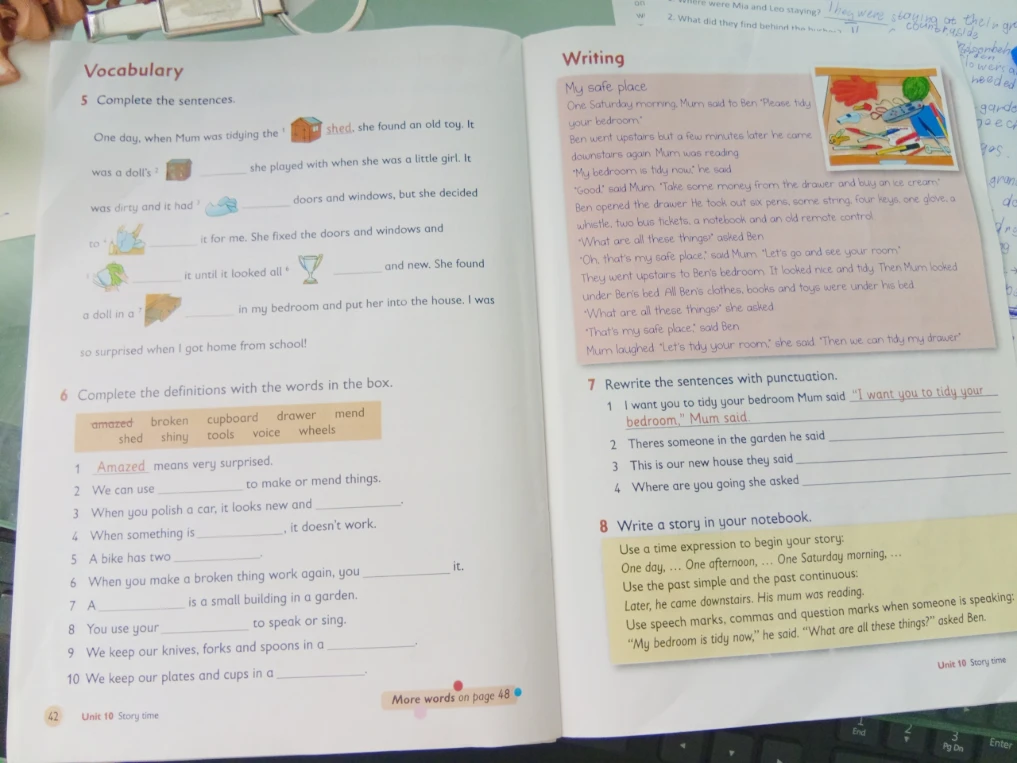 Vocabulary
5 Complete the sentences.
One day, when Mum was tidying the 1 shed, she found an old toy. It
was a doll's 2 ______ she played with when she was a little girl. It
was dirty and it had 3 ______ doors and windows, but she decided
to 4 ______ it for me. She fixed the doors and windows and
5 ______ it until it looked all 6 ______ and new. She found
a doll in a 7 ______ in my bedroom and put her into the house. I was
so surprised when I got home from school!
6 Complete the definitions with the words in the box.
amazed broken cupboard drawer mend
shed shiny tools voice wheels
1 Amazed means very surprised.
2 We can use ______ to make or mend things.
3 When you polish a car, it looks new and ______.
4 When something is ______, it doesn't work.
5 A bike has two ______.
6 When you make a broken thing work again, you ______ it.
7 A ______ is a small building in a garden.
8 You use your ______ to speak or sing.
9 We keep our knives, forks and spoons in a ______.
10 We keep our plates and cups in a ______.
More words on page 48
42 Unit 10 Story time
where were Mia and Leo staying? They were staying at their
2. What did they find behind the
Writing
My safe place
One Saturday morning, Mum said to Ben "Please tidy
your bedroom."
Ben went upstairs but a few minutes later he came
downstairs again. Mum was reading.
"My bedroom is tidy now," he said.
"Good," said Mum. "Take some money from the drawer and buy an ice cream."
Ben opened the drawer. He took out six pens, some string, four keys, one glove, a
whistle, two bus tickets, a notebook and an old remote control.
"What are all these things?" asked Ben.
"Oh, that's my safe place," said Mum. "Let's go and see your room."
They went upstairs to Ben's bedroom. It looked nice and tidy. Then Mum looked
under Ben's bed. All Ben's clothes, books and toys were under his bed.
"What are all these things?" she asked.
"That's my safe place," said Ben.
Mum laughed. "Let's tidy your room," she said. "Then we can tidy my drawer."
7 Rewrite the sentences with punctuation.
1 I want you to tidy your bedroom Mum said "I want you to tidy your
bedroom," Mum said.
2 Theres someone in the garden he said ______
3 This is our new house they said ______
4 Where are you going she asked ______
8 Write a story in your notebook.
Use a time expression to begin your story:
One day, ... One afternoon, ... One Saturday morning, ...
Use the past simple and the past continuous:
Later, he came downstairs. His mum was reading.
Use speech marks, commas and question marks when someone is speaking:
"My bedroom is tidy now," he said. "What are all these things?" asked Ben.
Unit 10 Story time
needed
1
End
2
3
Pg Dn
Enter